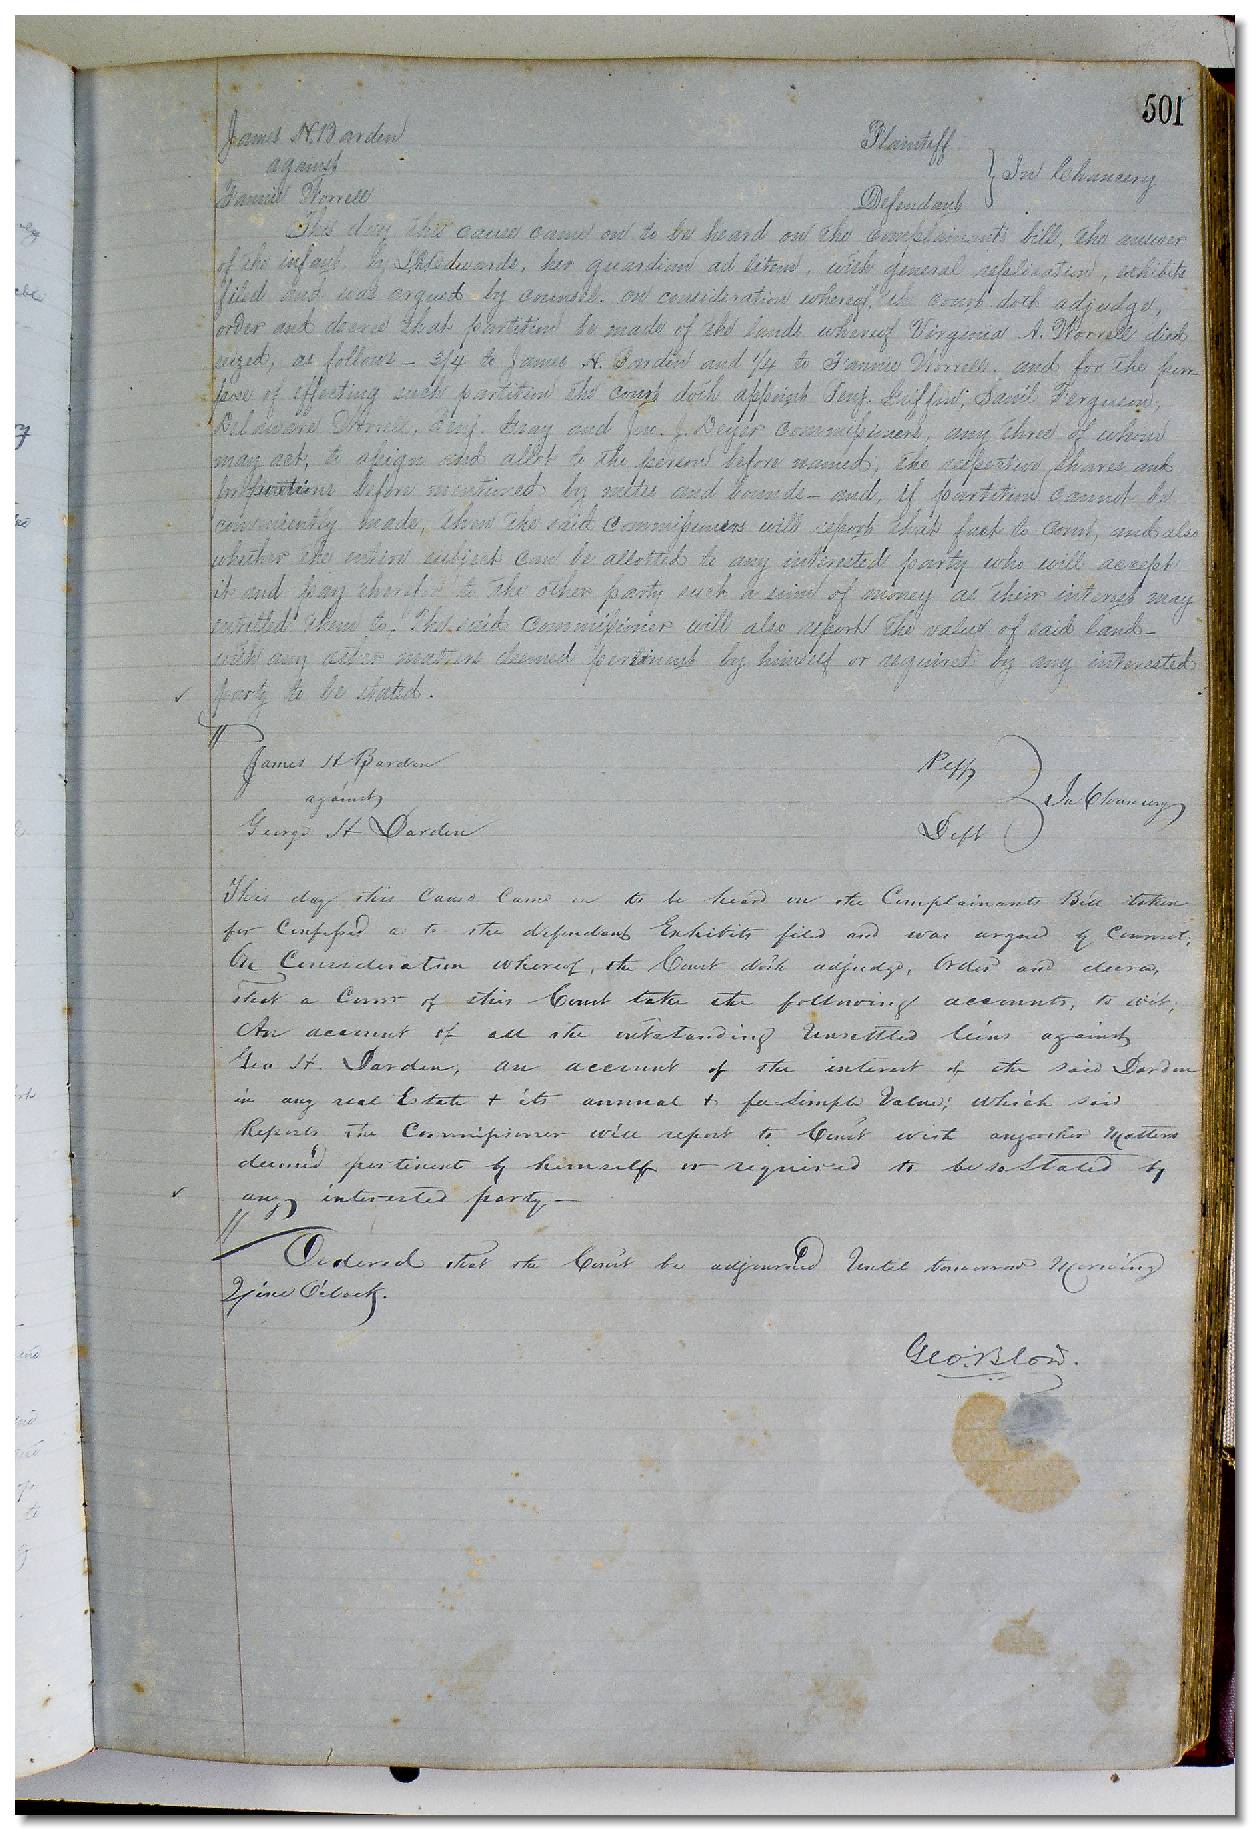 501
James H. Barden Plaintiff
against In Chancery
Fannie Worrell Defendant
This day this cause came on to be heard on the complainants bill, the answer
of the infant by Edwards, her guardian ad litem, with general replication, exhibits
filed and was argued by counsel. on consideration whereof, the court doth adjudge,
order and decree that partition be made of the lands whereof Virginia A. Worrell died
seized, as follows – 3/4 to James H. Barden and 1/4 to Fannie Worrell. and for the pur-
pose of effecting such partition the court doth appoint Benj. Griffin, Saml Ferguson,
Delaware Worrell, Benj. Gray and Jno. J. commissioners, any three of whom
may act, to assign and allot to the person before named, the respective shares and
proportions before mentioned by metes and bounds – and, if partition cannot be
conveniently made, then the said commissioners will report that fact to court, and also
whether the entire subject can be allotted to any interested party who will accept
it and pay therefor to the other party such a sum of money as their interest may
entitled them to. The said commissioner will also report the value of said land –
with any other matters deemed pertinent by himself or required by any interested
party to be stated.
James H Barden Plff
against In Chancery
George H Darden Deft
This day this cause came on to be heard on the Complainants Bill taken
for confessed as to the defendant Exhibits filed and was argued by Counsel,
On Consideration whereof, the Court doth adjudge, Order and decree,
that a Comr of this Court take the following accounts, to wit;
An account of all the outstanding Unsettled liens against
Geo H. Darden, an account of the interest of the said Darden
in any real Estate & its annual & fee Simple Value; which said
Reports The Commissioner will report to Court with any other Matters
deemed pertinent by himself or required to be so Stated by
any interested party –
Ordered that the Court be adjourned Until tomorrow Morning
Nine O'clock.
Geo. Blow.